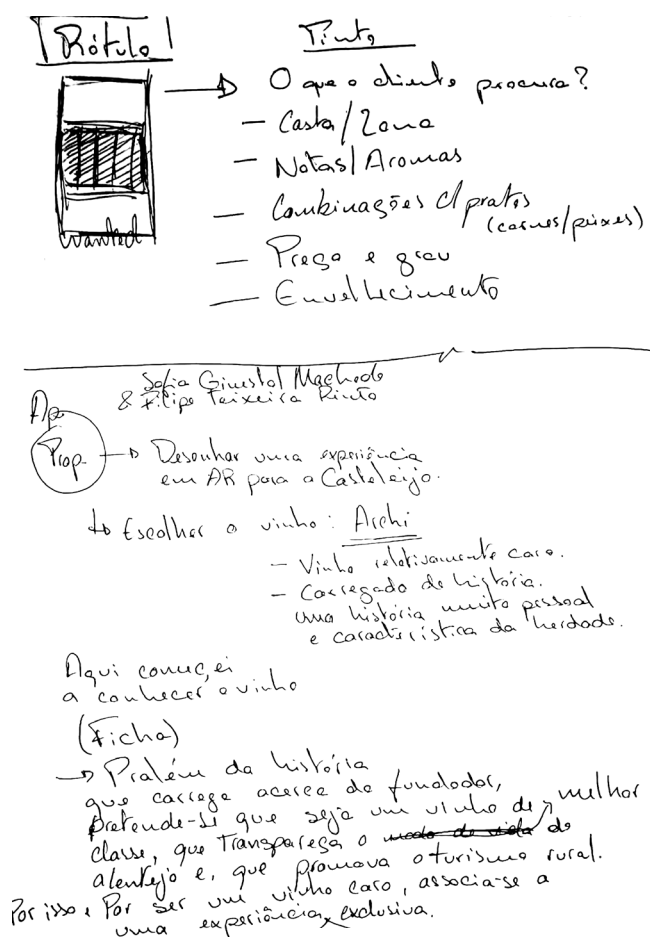 Rótulo
Tinto
O que o cliente procura?
— Casta/Zona
— Notas/Aromas
— Combinações c/ pratos
(carnes/peixes)
— Preço e grau
— Envelhecimento
Wanted
Sofia Ginestal Machado
& Filipe Teixeira Pinto
Prop. → Desenhar uma experiência
em AR para a Casteleijo.
↳ Escolher o vinho: Archi
- Vinho relativamente caro.
- Carregado de história.
uma história muito pessoal
e característica da herdade.
Aqui começei
a conhecer o vinho
(Ficha)
→ Pralém da história
que carrega acerca do fundador,
pretende-se que seja um vinho de
classe, que transpareça o modo de vida melhor do
alentejo e, que promova o turismo rural.
Por isso, Por ser um vinho caro, associa-se a
uma experiência exclusiva.